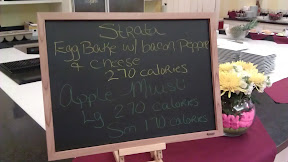 Strata
Egg Bake w/ bacon, Pepper
& cheese
270 calories
Apple Muesli
Lg 270 calories
Sm 170 calories